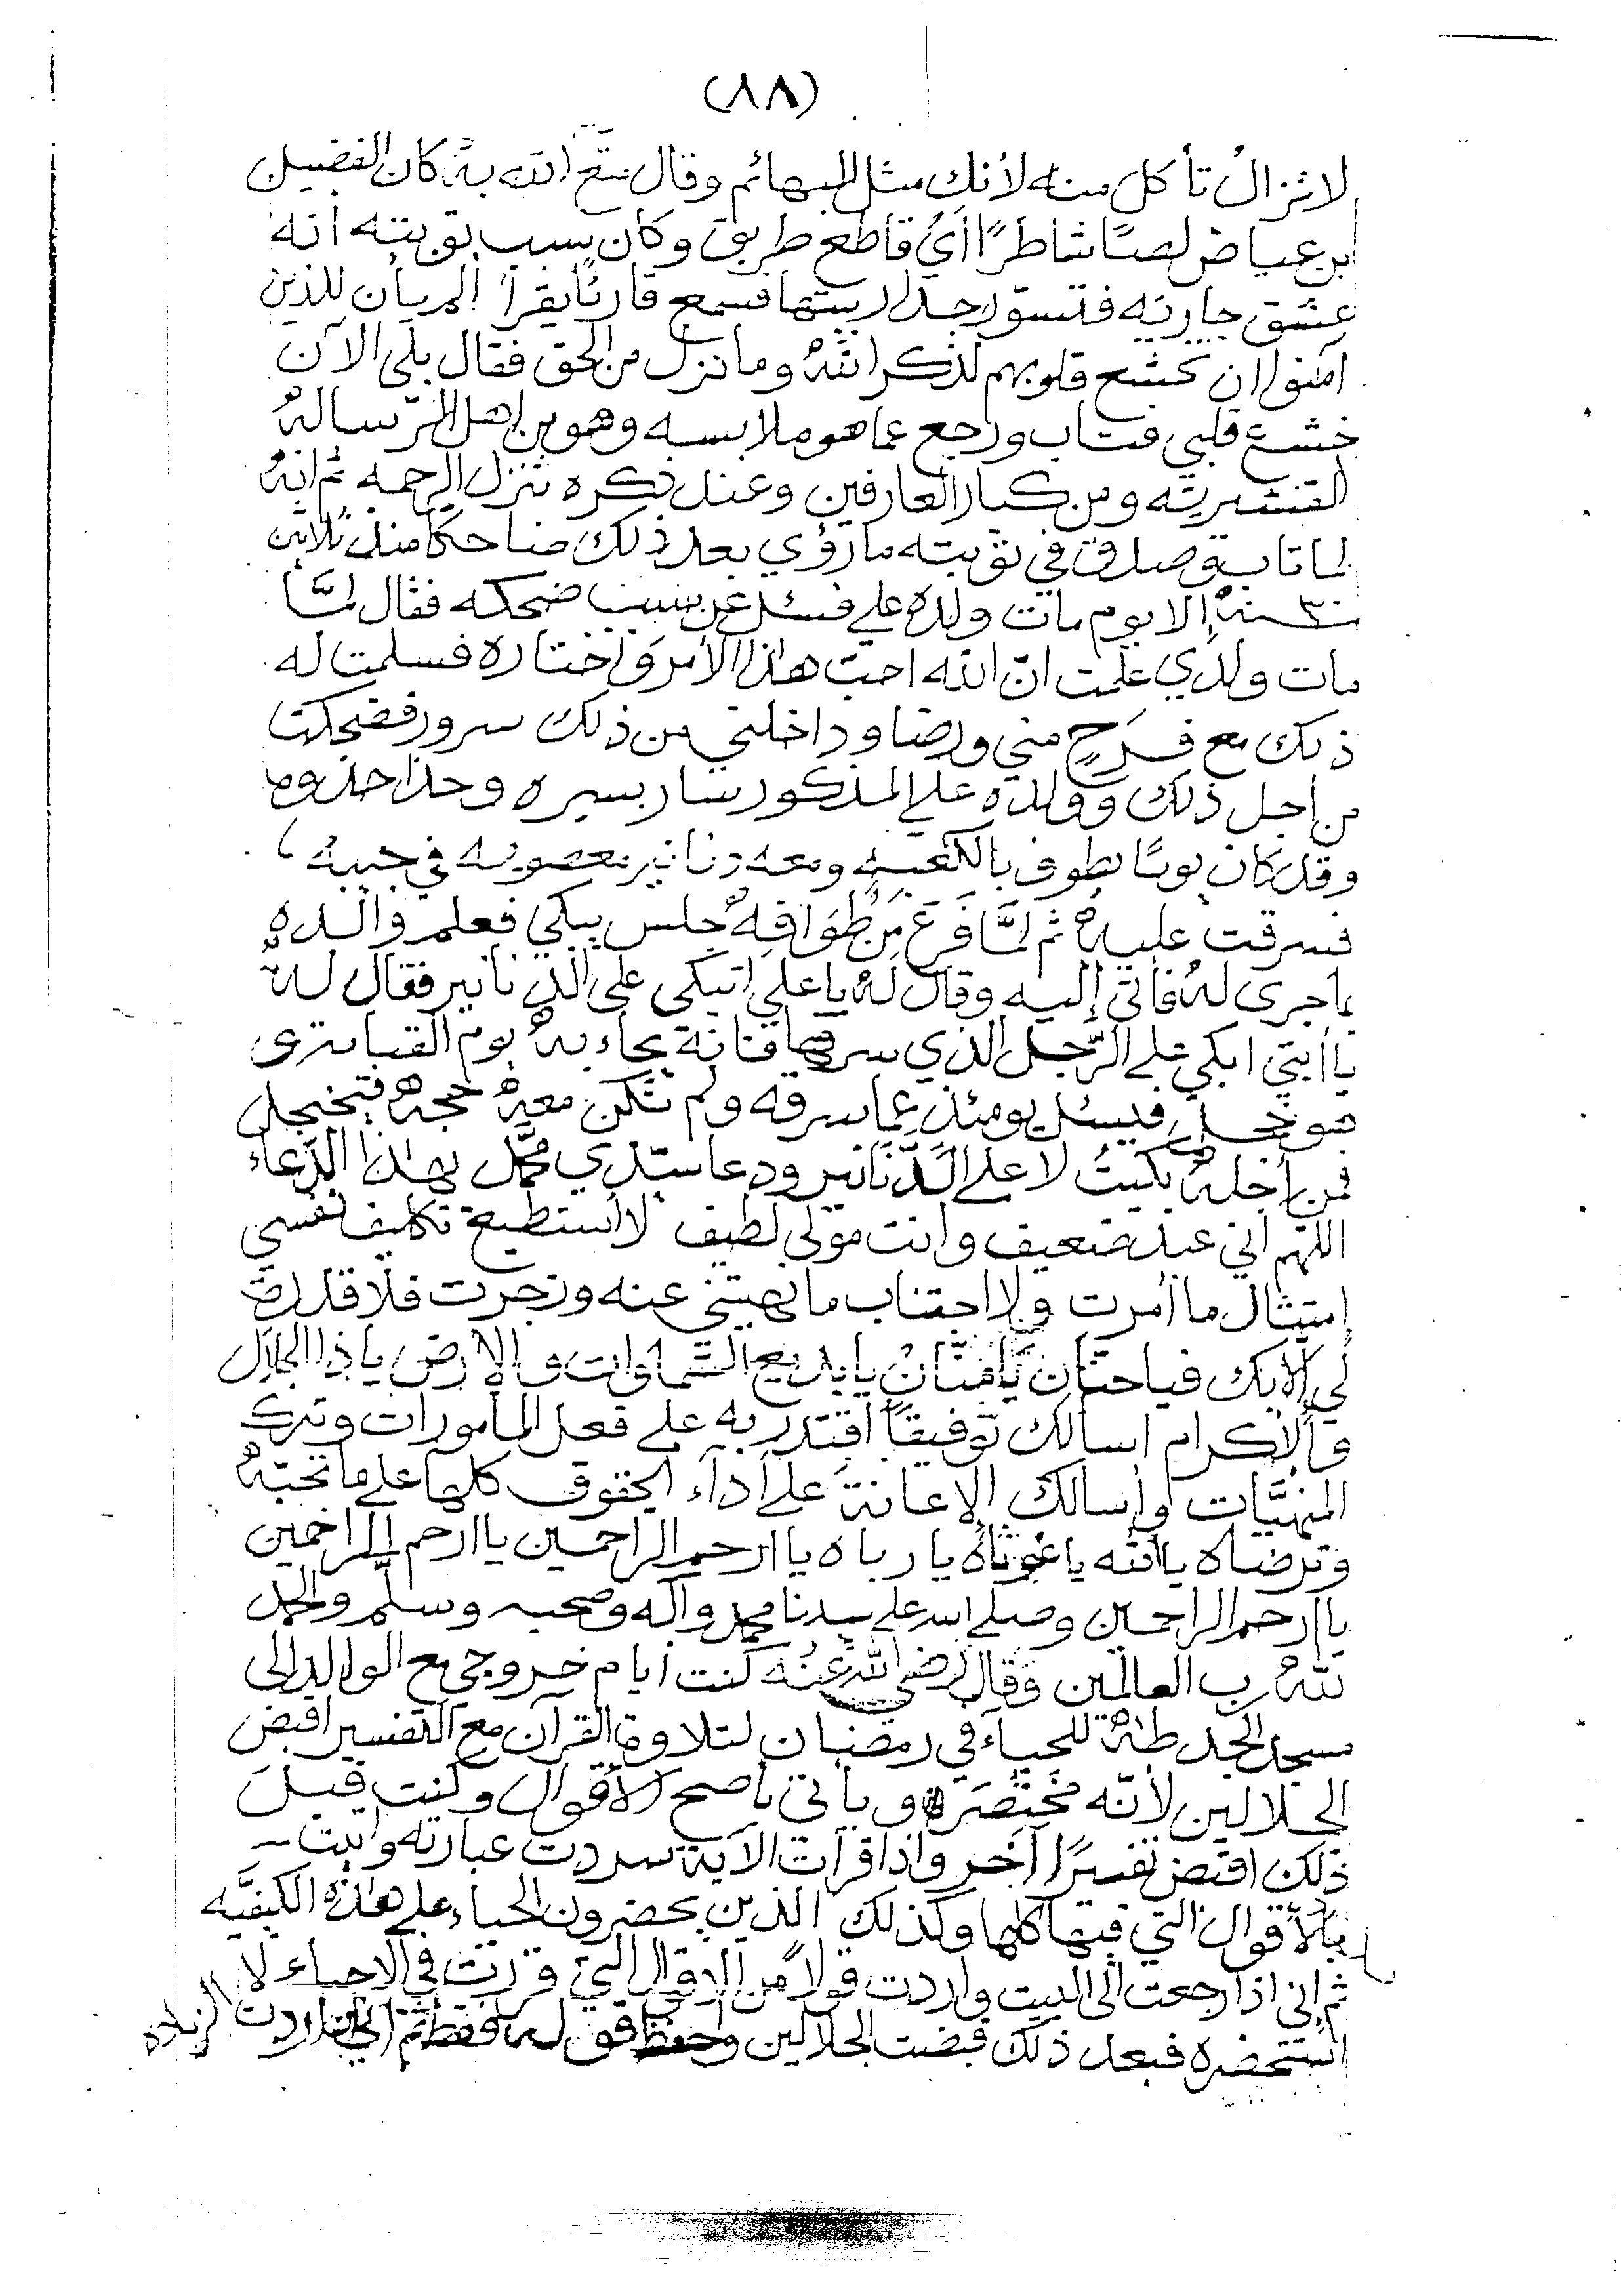 (٨٨)
لا تزال تأكل منه لأنك مثل البهائم وقال متع الله به كان الفضيل
ابن عياض لصًا شاطرًا أي قاطع طريق وكان سبب توبته انه
عشق جاريه فتسور جدار بيتها فسمع قارئًا يقرأ الم يأن للذين
آمنوا ان تخشع قلوبهم لذكر الله وما نزل من الحق فقال بلى الآن
خشع قلبي فتاب ورجع عما هو ملابسه وهو من اهل الرساله
القشيريه ومن كبار العارفين وعند ذكره تنزل الرحمه ثم انه
لما تاب وصدق في توبته ما رؤي بعد ذلك ضاحكا منذ ثلاثين
٣٠ سنة إلا يوم مات ولده علي فسئل عن سبب ضحكه فقال لمَّا
مات ولدي علمت انّ الله احب هذا الأمر واختاره فسلمت له
ذلك مع فرحٍ مني ورضا وداخلني من ذلك سرور فضحكت
من اجل ذلك وولده علي المذكور سار بسيره وحذا حذوه
وقد كان يومًا يطوف بالكعبه ومعه دنانير معصوبه في جيبه
فسرقت عليه ثم لمَّا فَرَغَ مِن طَوَافِهِ جلس يبكي فعلم والده
بما جرى له فأتى إليه وقال له يا علي اتبكي على الدنانير فقال له
يا أبتي ابكي على الرّجل الذي سرقها فإنه يجاء به يوم القيامة
فيسئل يومئذٍ عما سرقه ولم تكن معه حجة فيخجل
فمن أجله بكيتُ لا على الدّنانير ودعا سيدي محمّد بهذا الدّعاء
اللهم اني عبد ضعيف وانت مولى لطيف لا أستطيع تكليف نفسي
امتثال ما أمرت ولا اجتناب ما نهيتني عنه وزجرت فلا قدرة
لي إلا بك فيا حنّان يا منّان يا بديع السّماوات والارض يا ذا الجلال
والإكرام اسألك توفيقاً اقتدر به على فعل المأمورات وترك
المنهيَّات وأسألك الإعانةَ على أدآء الحقوق كلها على ما تحبّه
وترضاه يا الله يا غوثاه يا رباه يا ارحم الراحمين يا ارحم الراحمين
يا ارحم الراحمين وصلى الله على سيدنا محمد وآله وصحبه وسلَّم والحمد
لله رب العالمين وقال رضي الله عنه كنت أيام خروجي مع الوالد الى
مسجد الجد طه للحياء في رمضان لتلاوة القرآن مع التفسير اقبض
الجلالين لأنّه مختصر ويأتي بأصح الأقوال وكنت قبل
ذلك اقبض تفسيرًا آخر واذا قرأت الآية سردت عبارته وأتيت
بالأقوال التي فيها كلها وكذلك الذين يحضرون الحياء على هذه الكيفيَّه
ثم إني اذا رجعت الى البيت واردت قولاً من الاقوال التي قرئت في الاحياء لا
أستحضره فبعد ذلك قبضت الجلالين واحفظ قوله فقط ثم اردت الزياده